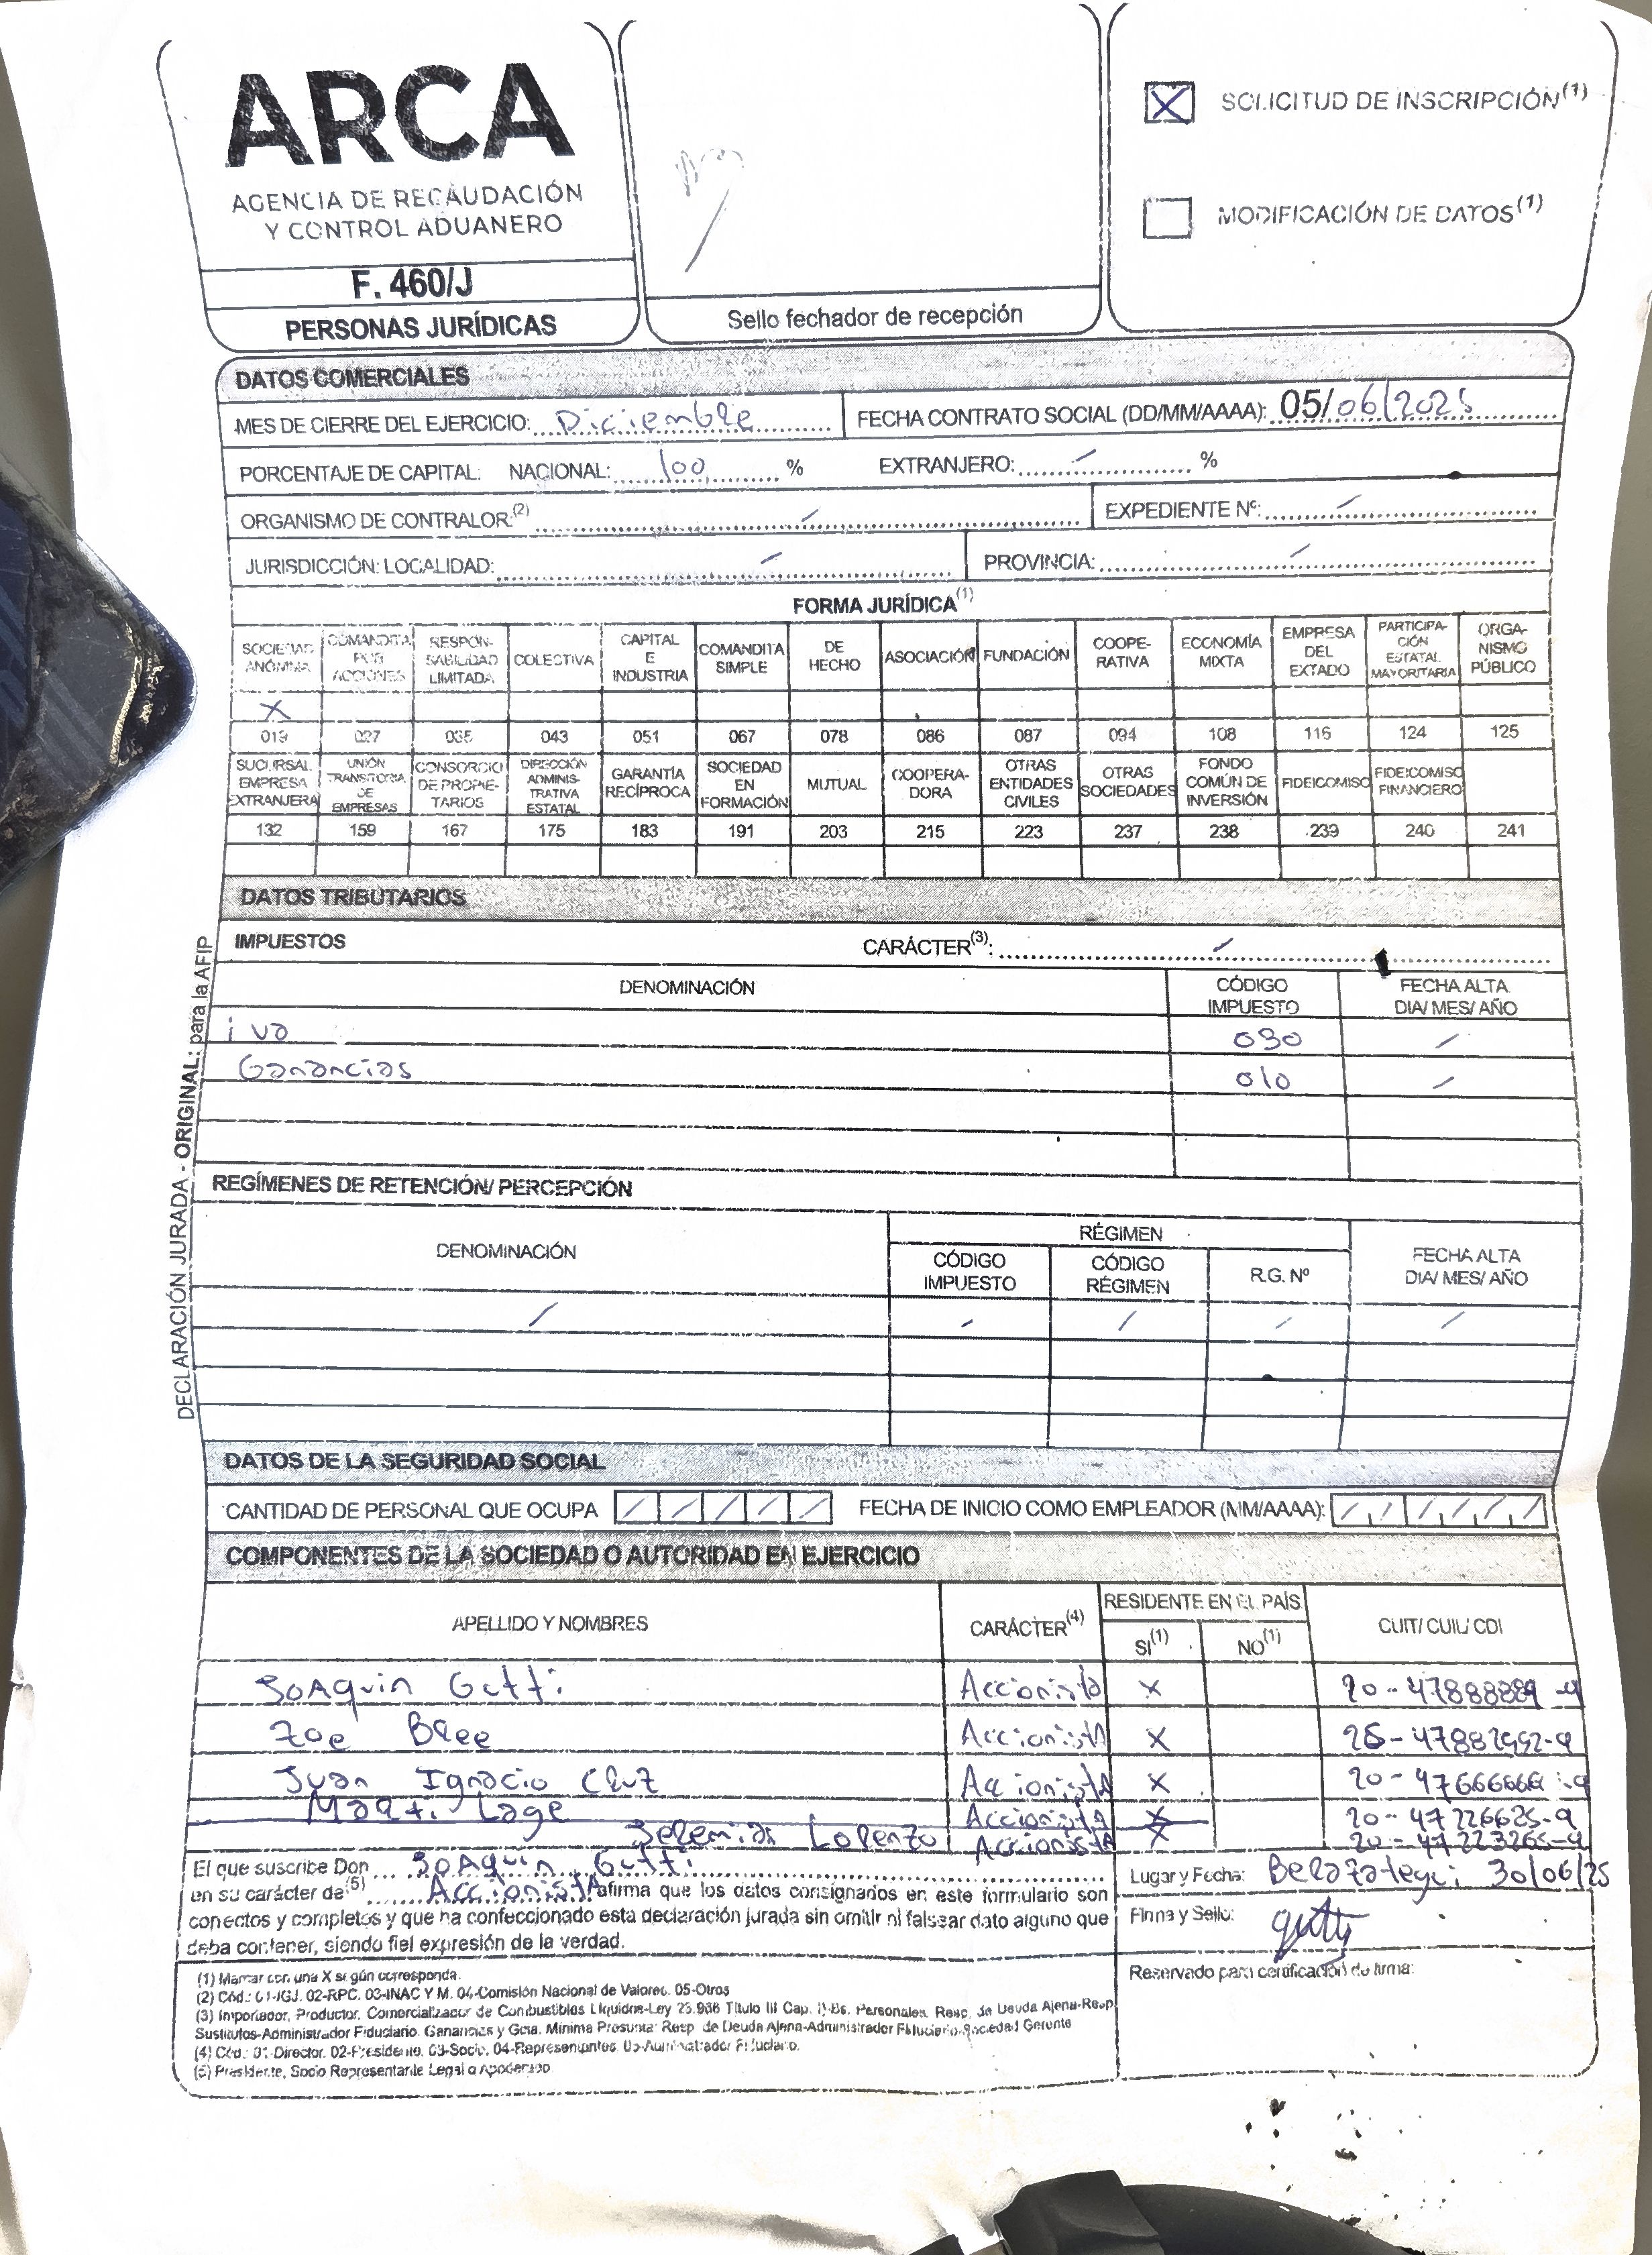 ARCA
AGENCIA DE RECAUDACIÓN
Y CONTROL ADUANERO
F. 460/J
PERSONAS JURÍDICAS
Sello fechador de recepción
X SOLICITUD DE INSCRIPCIÓN(1)
MODIFICACIÓN DE DATOS(1)
DATOS COMERCIALES
MES DE CIERRE DEL EJERCICIO: Diciembre FECHA CONTRATO SOCIAL (DD/MM/AAAA): 05/06/2025
PORCENTAJE DE CAPITAL: NACIONAL: 100 % EXTRANJERO: / %
ORGANISMO DE CONTRALOR:(2) / EXPEDIENTE Nº: /
JURISDICCIÓN: LOCALIDAD: / PROVINCIA: /
FORMA JURÍDICA(1)
SOCIEDAD ANÓNIMA COMANDITA POR ACCIONES RESPON-SABILIDAD LIMITADA COLECTIVA CAPITAL E INDUSTRIA COMANDITA SIMPLE DE HECHO ASOCIACIÓN FUNDACIÓN COOPE-RATIVA ECONOMÍA MIXTA EMPRESA DEL EXTADO PARTICIPA-CIÓN ESTATAL MAYORITARIA ORGA-NISMO PÚBLICO
X
019 027 035 043 051 067 078 086 087 094 108 116 124 125
SUCURSAL EMPRESA EXTRANJERA UNIÓN TRANSITORIA DE EMPRESAS CONSORCIO DE PROPIE-TARIOS DIRECCIÓN ADMINIS-TRATIVA ESTATAL GARANTÍA RECÍPROCA SOCIEDAD EN FORMACIÓN MUTUAL COOPERA-DORA OTRAS ENTIDADES CIVILES OTRAS SOCIEDADES FONDO COMÚN DE INVERSIÓN FIDEICOMISO FIDEICOMISO FINANCIERO
132 159 167 175 183 191 203 215 223 237 238 239 240 241
DATOS TRIBUTARIOS
IMPUESTOS CARÁCTER(3): /
DENOMINACIÓN CÓDIGO IMPUESTO FECHA ALTA DIA/ MES/ AÑO
iva 030 /
Ganancias 010 /
REGÍMENES DE RETENCIÓN/ PERCEPCIÓN
DENOMINACIÓN RÉGIMEN FECHA ALTA DIA/ MES/ AÑO
CÓDIGO IMPUESTO CÓDIGO RÉGIMEN R.G. Nº
/ / / / /
DATOS DE LA SEGURIDAD SOCIAL
CANTIDAD DE PERSONAL QUE OCUPA / / / / / FECHA DE INICIO COMO EMPLEADOR (MM/AAAA): / / / / / /
COMPONENTES DE LA SOCIEDAD O AUTORIDAD EN EJERCICIO
APELLIDO Y NOMBRES CARÁCTER(4) RESIDENTE EN EL PAÍS CUIT/ CUIL/ CDI
SI(1) NO(1)
Joaquin Gutti Accionista X
Zoe Accionista X
Juan Ignacio Cruz Accionista X 20-47666666-9
Marti Lage Accionista X 20-47226625-9
Jeremias Lorenzo Accionista X
El que suscribe Don Joaquin Gutti
en su carácter de(5) Accionista afirma que los datos consignados en este formulario son
correctos y completos y que ha confeccionado esta declaración jurada sin omitir ni falsear dato alguno que
deba contener, siendo fiel expresión de la verdad.
Lugar y Fecha: Berazategui 30/06/25
Firma y Sello: gutti
Reservado para certificación de firma:
(1) Marcar con una X según corresponda.
(2) Cód.: 01-IGJ. 02-RPC. 03-INAC Y M. 04-Comisión Nacional de Valores. 05-Otros
(3) Importador, Productor, Comercializador de Combustibles Líquidos-Ley 23.966 Título III Cap. I)-Bs. Personales. Resp. de Deuda Ajena-Resp.
Sustitutos-Administrador Fiduciario. Ganancias y Gcia. Mínima Presunta: Resp. de Deuda Ajena-Administrador Fiduciario-Sociedad Gerente
(4) Cód.: 01-Director. 02-Presidente. 03-Socio. 04-Representantes. 05-Administrador Fiduciario.
(5) Presidente, Socio Representante Legal o Apoderado
DECLARACIÓN JURADA - ORIGINAL: para la AFIP